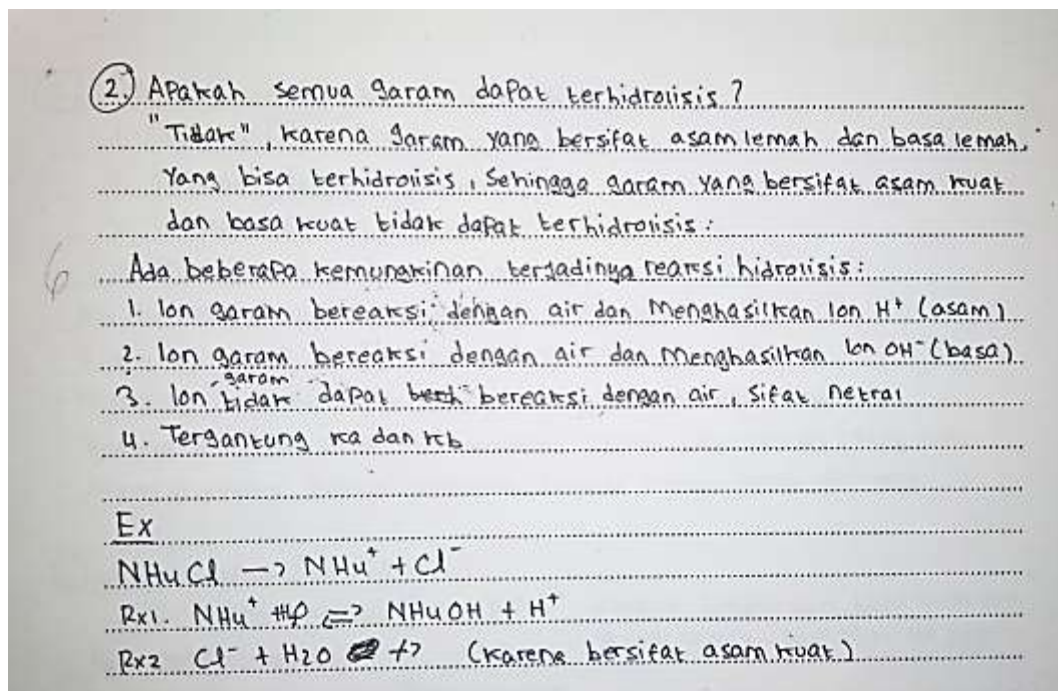 2. Apakah semua garam dapat terhidrolisis?
"Tidak", karena garam yang bersifat asam lemah dan basa lemah,
yang bisa terhidrolisis, sehingga garam yang bersifat asam kuat
dan basa kuat tidak dapat terhidrolisis:
6
Ada beberapa kemungkinan terjadinya reaksi hidrolisis:
1. Ion garam bereaksi dengan air dan Menghasilkan Ion H⁺ (asam)
2. Ion garam bereaksi dengan air dan Menghasilkan Ion OH⁻ (basa)
3. Ion garam tidak dapat bereaksi dengan air, sifat netral
4. Tergantung ka dan kb
Ex
NH4Cl → NH4⁺ + Cl⁻
Rx1. NH4⁺ ⇌ NH4OH + H⁺
Rx2 Cl⁻ + H2O ↛ (karena bersifat asam kuat)